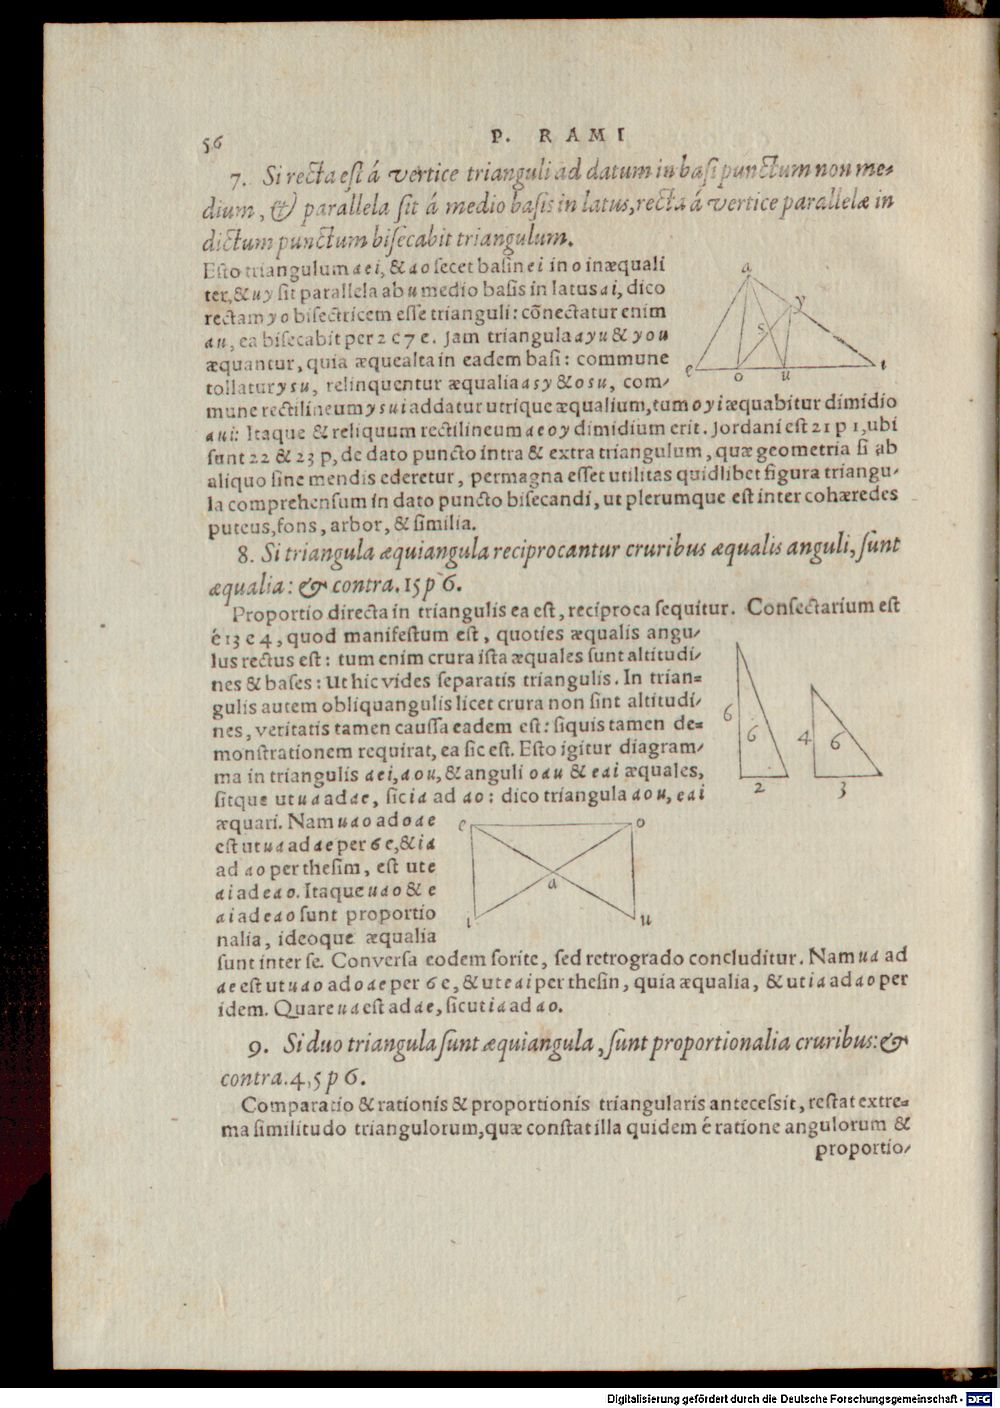 56
P. RAMI
7. Si recta est á vertice trianguli ad datum in basi punctum non me=
dium, & parallela sit á medio basis in latus, recta á vertice parallelæ in
dictum punctum bisecabit triangulum.
Esto triangulum aei, & ao secet basin ei in o inæquali
ter, & uy sit parallela ab u medio basis in latus ai, dico
rectam yo bisectricem esse trianguli: cõnectatur enim
au, ea bisecabit per 2 c 7 e. Jam triangula ayu & you
æquantur, quia æquealta in eadem basi: commune
tollatur ysu, relinquentur æqualia asy & osu, com/
mune rectilineum ysui addatur utrique æqualium, tum oyi æquabitur dimidio
aui: Itaque & reliquum rectilineum aeoy dimidium erit. Jordani est 21 p 1, ubi
sunt 22 & 23 p, de dato puncto intra & extra triangulum, quæ geometria si ab
aliquo sine mendis ederetur, permagna esset utilitas quidlibet figura triangu/
la comprehensum in dato puncto bisecandi, ut plerumque est inter cohæredes
puteus, fons, arbor, & similia.
a
y
s
e
o
u
i
8. Si triangula æquiangula reciprocantur cruribus æqualis anguli, sunt
æqualia: & contra. 15 p 6.
Proportio directa in triangulis ea est, reciproca sequitur. Consectarium est
é 13 e 4, quod manifestum est, quoties æqualis angu/
lus rectus est: tum enim crura ista æquales sunt altitudi/
nes & bases: Ut hic vides separatis triangulis. In trian=
gulis autem obliquangulis licet crura non sint altitudi/
nes, veritatis tamen caussa eadem est: siquis tamen de=
monstrationem requirat, ea sic est. Esto igitur diagram/
ma in triangulis aei, aou, & anguli oau & eai æquales,
sitque ut ua ad ae, sic ia ad ao: dico triangula aou, eai
6
6
2
4
6
3
æquari. Nam uao ad oae
est ut ua ad ae per 6 e, & ia
ad ao per thesim, est ut e
ai ad eao. Itaque uao & e
ai ad eao sunt proportio
nalia, ideoque æqualia
e
o
a
i
u
sunt inter se. Conversa eodem sorite, sed retrogrado concluditur. Nam ua ad
ae est ut uao ad oae per 6 e, & ut eai per thesin, quia æqualia, & ut ia ad ao per
idem. Quare ua est ad ae, sicut ia ad ao.
9. Si duo triangula sunt æquiangula, sunt proportionalia cruribus: &
contra. 4, 5 p 6.
Comparatio & rationis & proportionis triangularis antecessit, restat extre=
ma similitudo triangulorum, quæ constat illa quidem é ratione angulorum &
proportio/
Digitalisierung gefördert durch die Deutsche Forschungsgemeinschaft - DFG